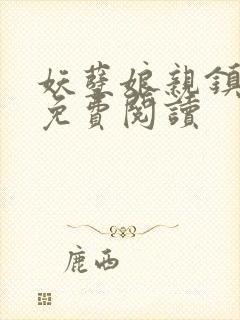 妖孽娘親鎮
免費閱讀
鹿西